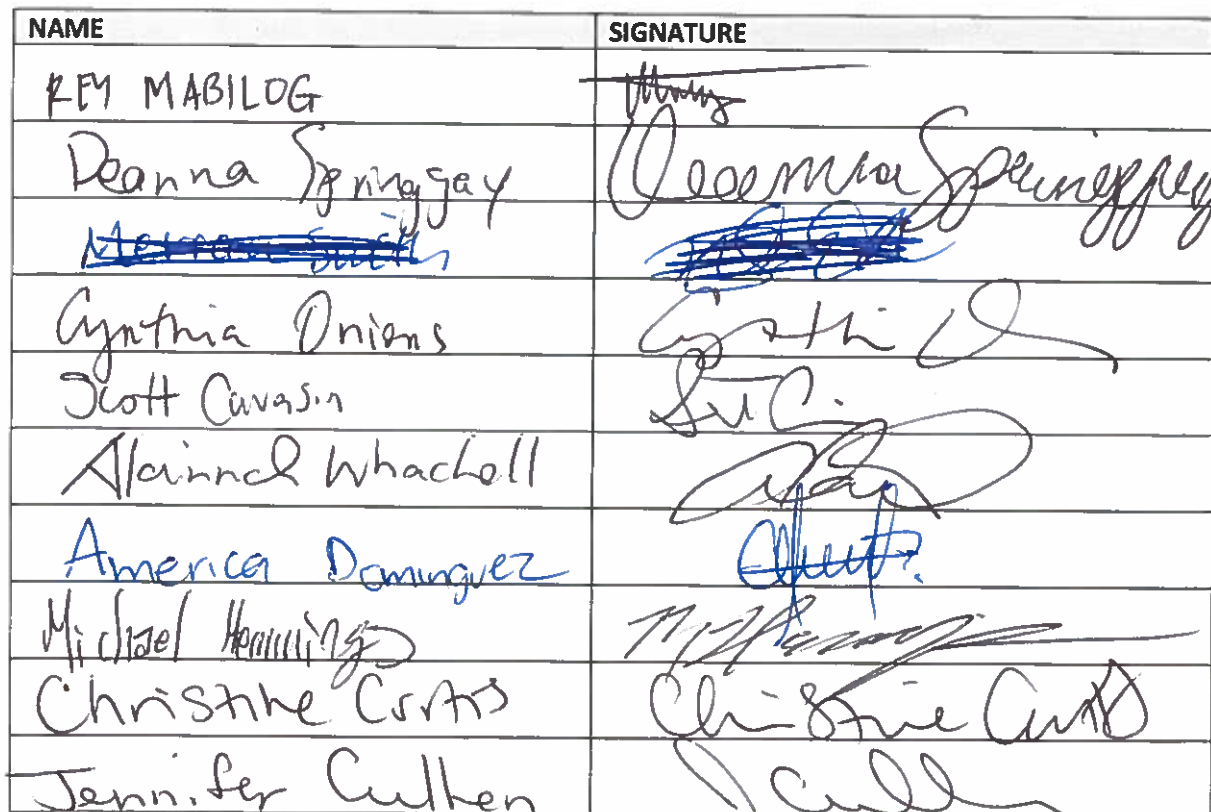 NAME SIGNATURE
REY MABILOG
Deanna Springgay Deanna Springgay
Cynthia Onions Cynthia O
Scott Cavasin
Alainnah Whachell
America Dominguez
Michael Hemmings
Christine Curtis Christine Curtis
Jennifer Cullen J Cullen